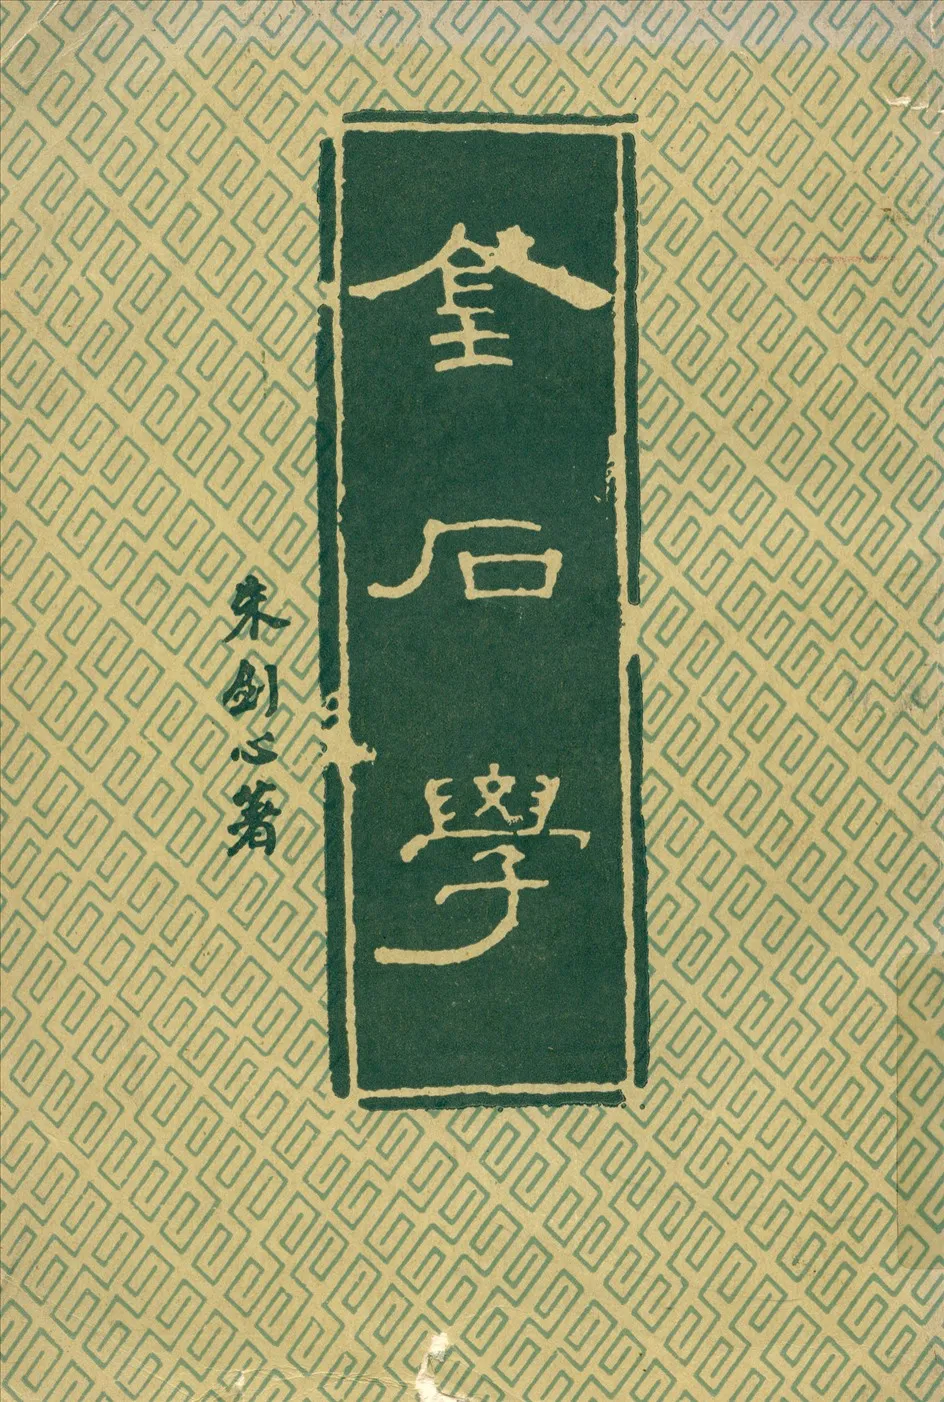 金石學
朱劍心著